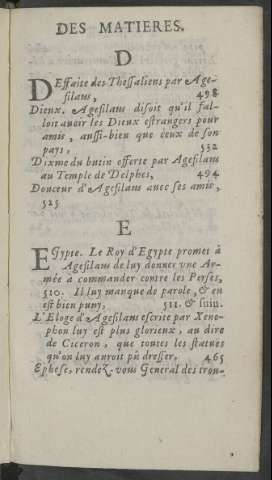 DES MATIERES.
D
DEffaite des Thessaliens par Age-
silaus, 498
Dieux. Agesilaus disoit qu'il fal-
loit avoir les Dieux estrangers pour
amis, aussi-bien que ceux de son
pays, 532
Dixme du butin offerte par Agesilaus
au Temple de Delphes, 494
Douceur d'Agesilaus avec ses amis,
525
E
EGypte. Le Roy d'Egypte promet à
Agesilaus de luy donner vne Ar-
mée à commander contre les Perses,
510. Il luy manque de parole, & en
est bien puny, 511. & suiu.
L'Eloge d'Agesilaus escrite par Xeno-
phon luy est plus glorieux, au dire
de Ciceron, que toutes les statuës
qu'on luy auroit pû dresser, 465
Ephese, rendez-vous General des trou-